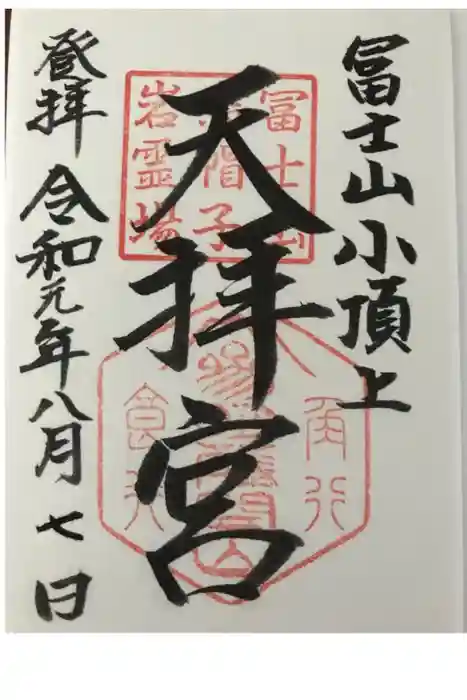 冨士山小頂上
天拝宮
登拝 令和元年八月七日
冨士山
烏帽子
岩霊場
角行
食行